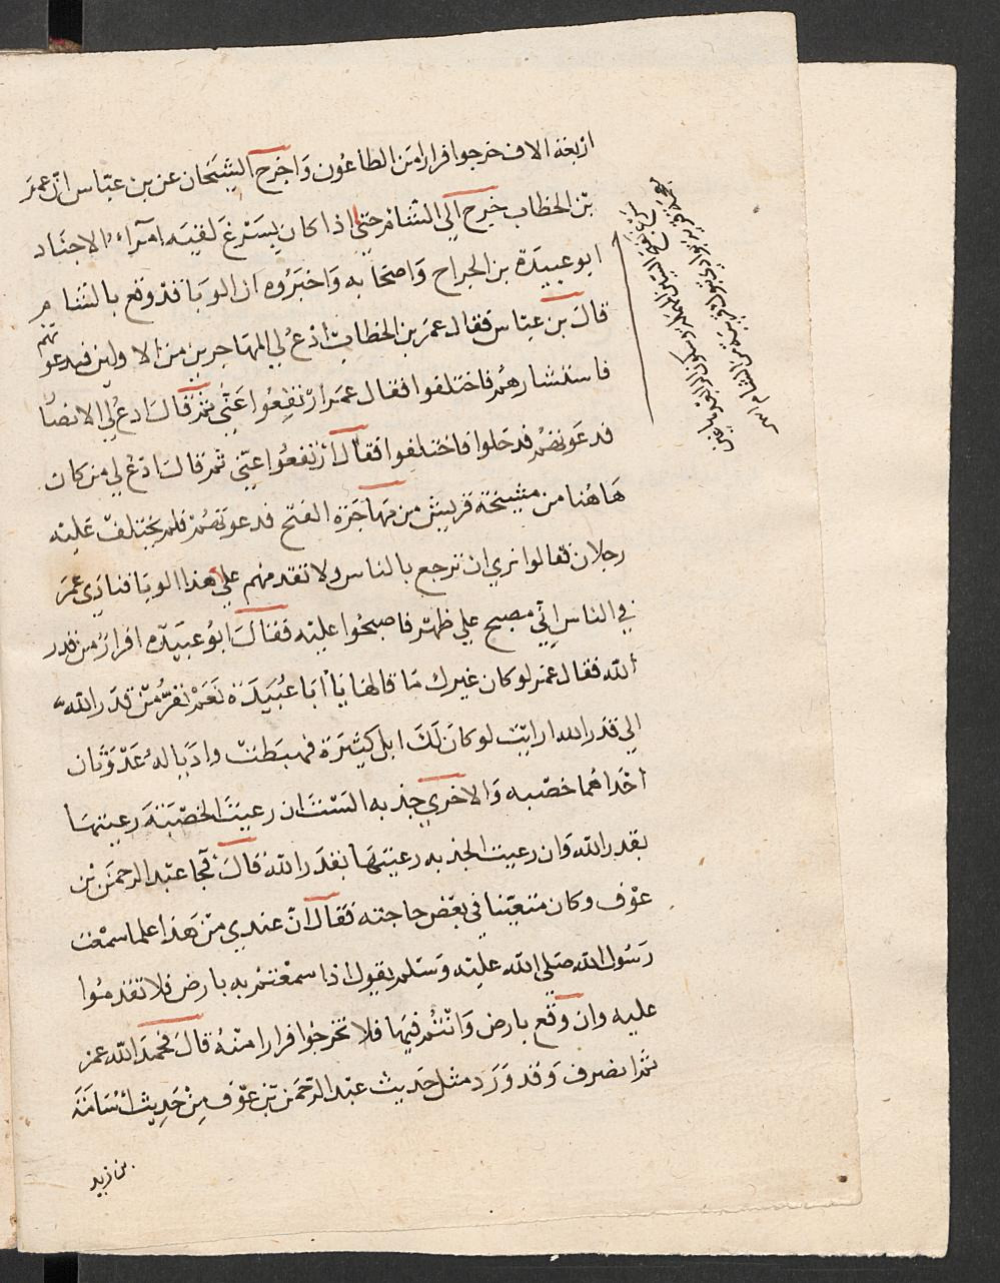 اربعة الاف خرجوا فرارا من الطاعون واخرج الشيخان عن بن عباس ان عمر
بن الخطاب خرج الي الشام حتي اذا كان بسرغ لقيه امراء الاجناد
ابو عبيدة بن الجراح واصحابه واخبروه ان الوبا قد وقع بالشام
قال بن عباس فقال عمر بن الخطاب ادع لي المهاجرين من الاولين فدعوتهم
فاستشارهم فاختلفوا فقال عمر ارتفعوا عني ثم قال ادع لي الانصا
فدعوتهم فدخلوا فاختلفوا فقال ارتفعوا عني ثم قال ادع لي من كان
هاهنا من مشيخة قريش من مهاجرة الفتح فدعوتهم فلم يختلف عليه
رجلان فقالوا نري ان ترجع بالناس ولا تقدمهم علي هذا الوبا فنادي عمر
في الناس اني مصبح علي ظهر فاصبحوا عليه فقال ابو عبيده افرار من قدر
الله فقال عمر لو كان غيرك ما قالها يا ابا عبيدة نعم نفر من قدر الله
الي قدر الله ارايت لو كان لك ابل كثيرة فهبطت واديا له عدوتان
احداهما خصبه والاخري جذبه الست ان رعيت الخصبة رعيتها
بقدر الله وان رعيت الجذبه رعيتها بقدر الله قال فجا عبد الرحمن بن
عوف وكان متغيبا في بعض حاجته فقال ان عندي من هذا علما سمعت
رسول الله صلي الله عليه وسلم يقول اذا سمعتم به بارض فلا تقدموا
عليه وان وقع بارض وانتم فيها فلا تخرجوا فرارا منه قال فحمد الله عمر
ثم انصرف وقد ورد مثل حديث عبد الرحمن بن عوف من حديث اسامة
بن زيد